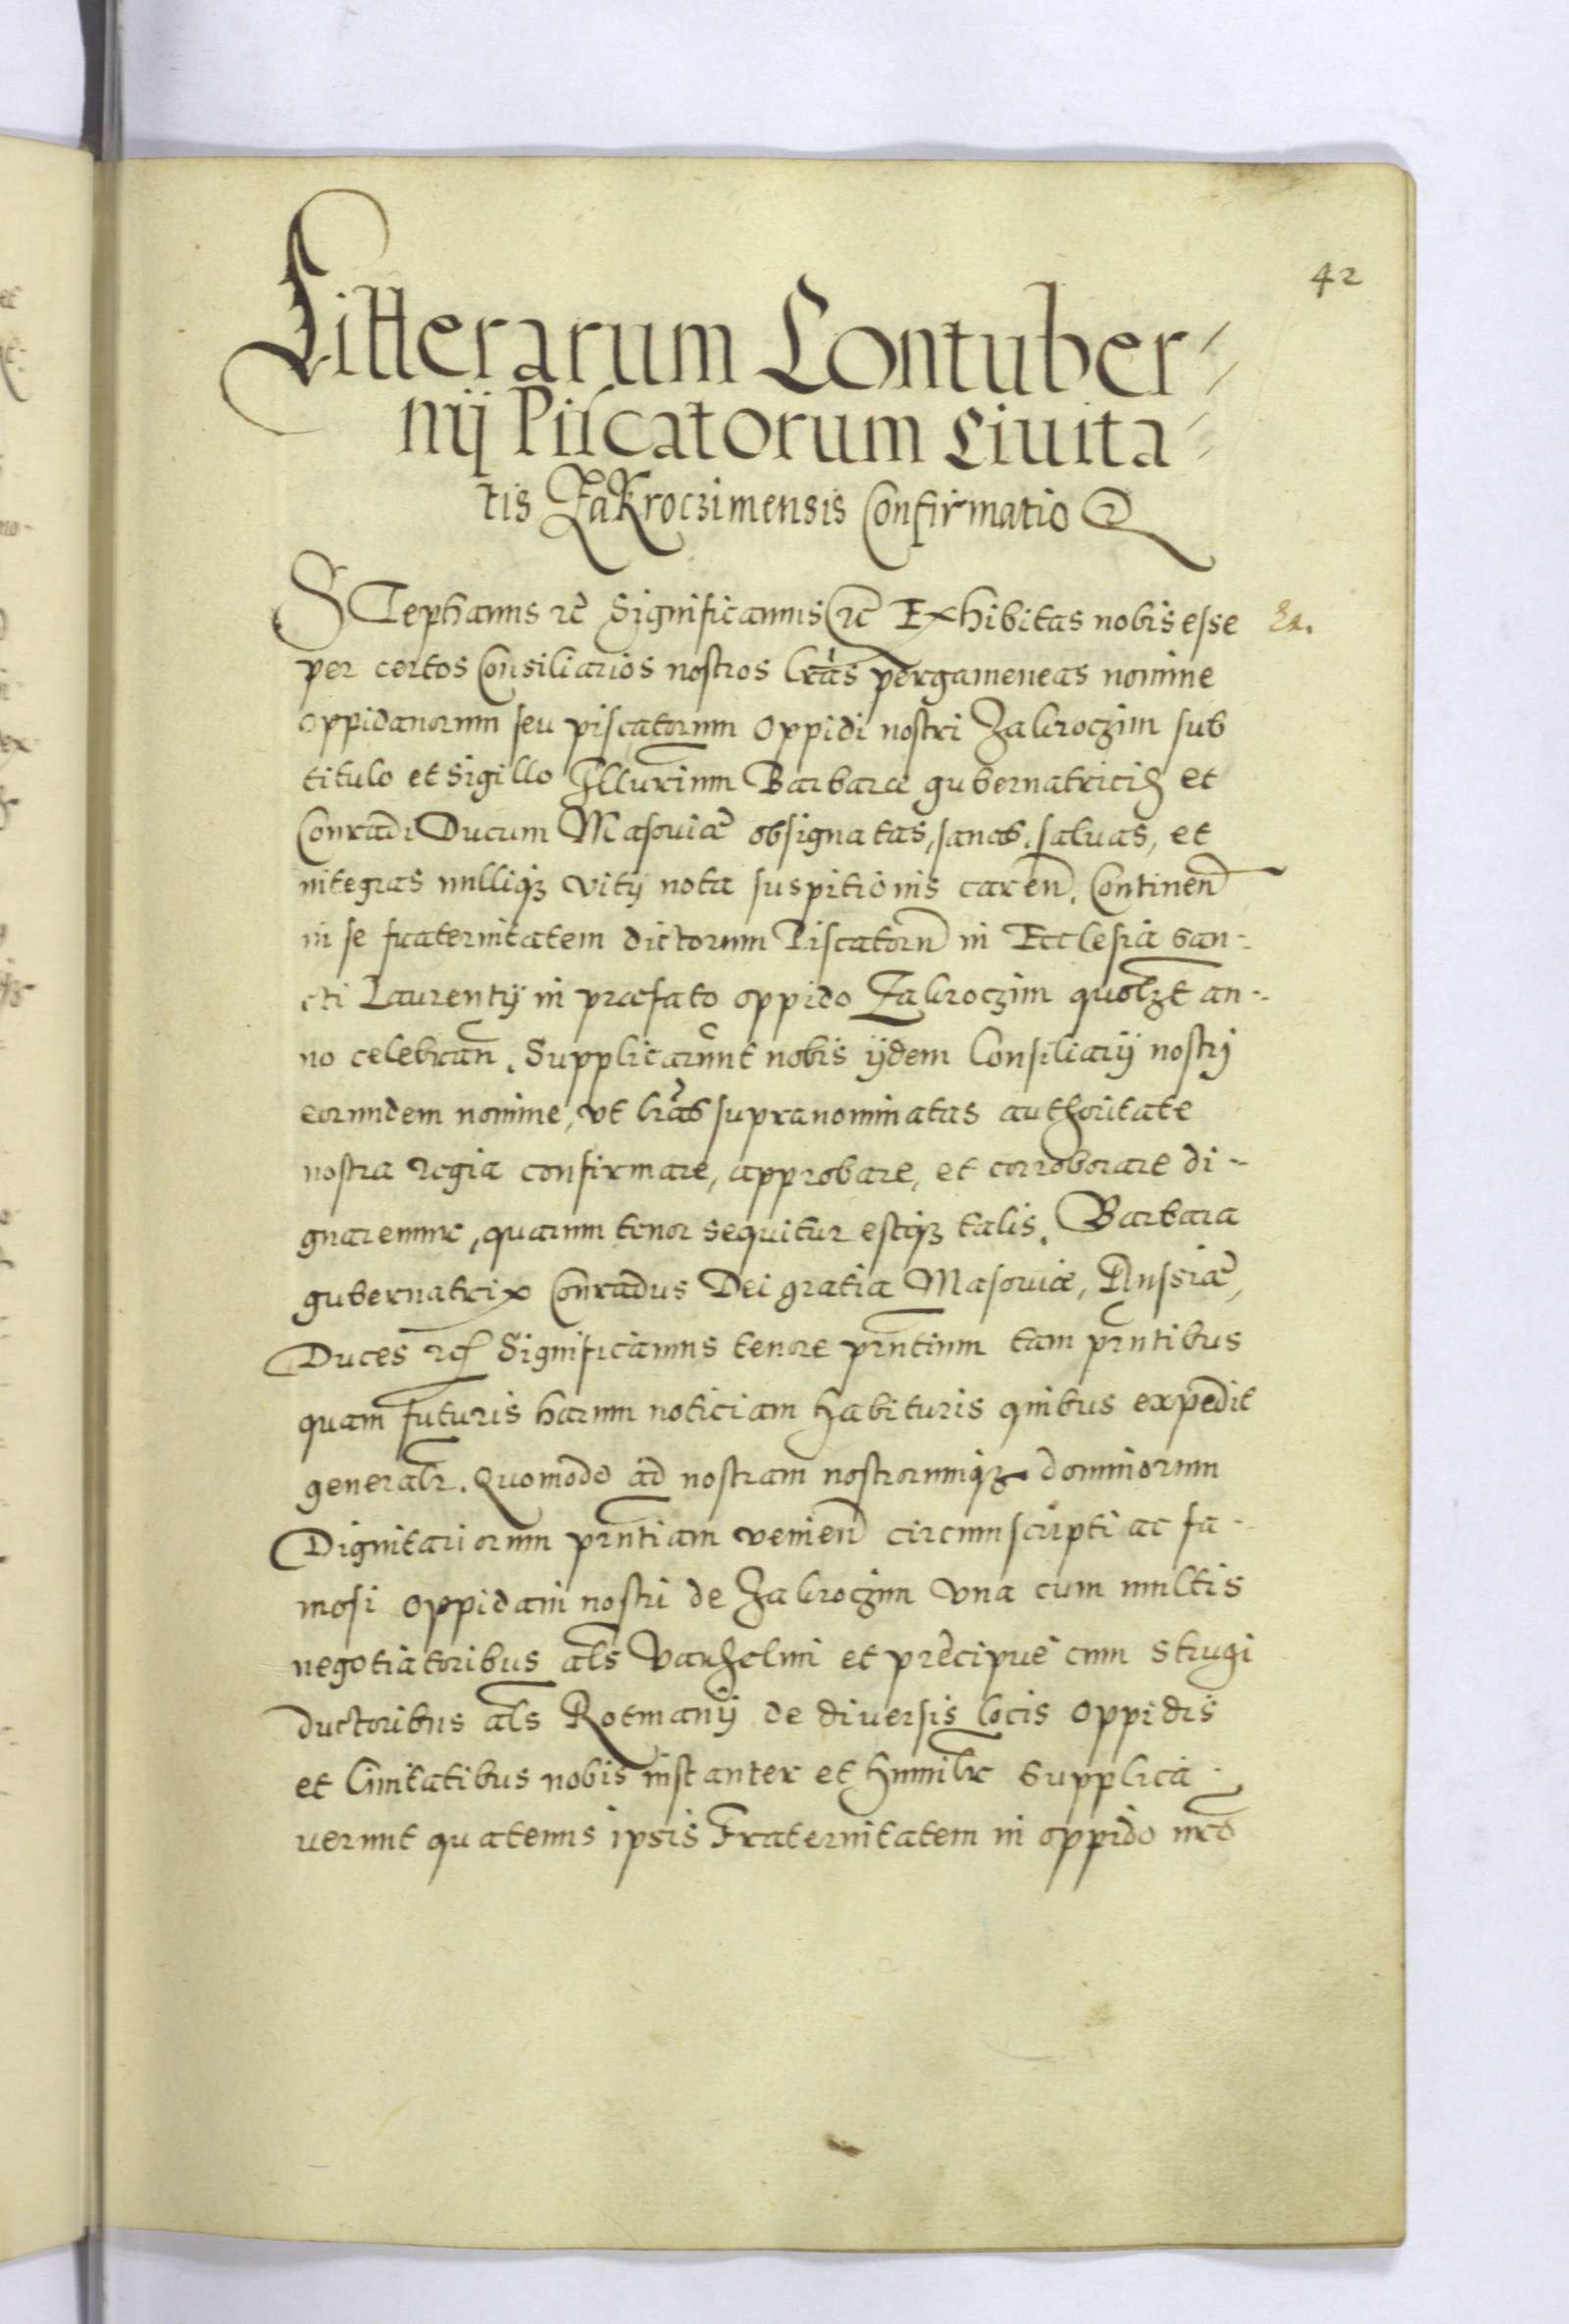 42
Litterarum Contuber-
nij Piscatorum Ciuita-
tis Zakroczimensis Confirmatio
Stephanus etc̃ Significamus etc̃ Exhibitas nobis esse
per certos Consiliarios nostros lr̃as pergameneas nomine
oppidanorum seu piscatorum oppidi nostri Zakroczim sub
titulo et sigillo Illurium Barbara gubernatricis et
Conradi Ducum Masouiæ obsignatas, sanas, saluas, et
integras nulliqꝫ vitij nota suspitionis caren̄. Continen̄
in se fraternitatem dictorum Piscatorũ in Ecclesia San-
cti Laurentij in præfato oppido Zakroczim quolꝫt an-
no celebran̄. Supplicarunt nobis ijdem Consiliarij nostrj
eorundem nomine, vt lr̃as supranominatas authoritate
nostra regia confirmare, approbare, et corroborare di-
gnaremur, quarum tenor sequitur estqꝫ talis. Barbara
gubernatrix Conradus Dei gratia Masouiæ, Russiæ,
Duces etc Significamus tenore prñtium tam prñtibus
quam futuris harum noticiam habituris quibus expedit
generalr̃. Quomodo ad nostram nostrorumqꝫ dominorum
Dignitariorum prñtiam venien̄ circumscripti ac fa-
mosi oppidani nostri de Zakroczim vna cum multis
negotiatoribus als̃ Vanzelini et præcipuè cum strugi
ductoribus als̃ Rotmanij de diuersis locis oppidis
et Ciuitatibus nobis instanter et humilr̃ supplica-
uerunt quatenus ipsis Fraternitatem in oppido nrõ